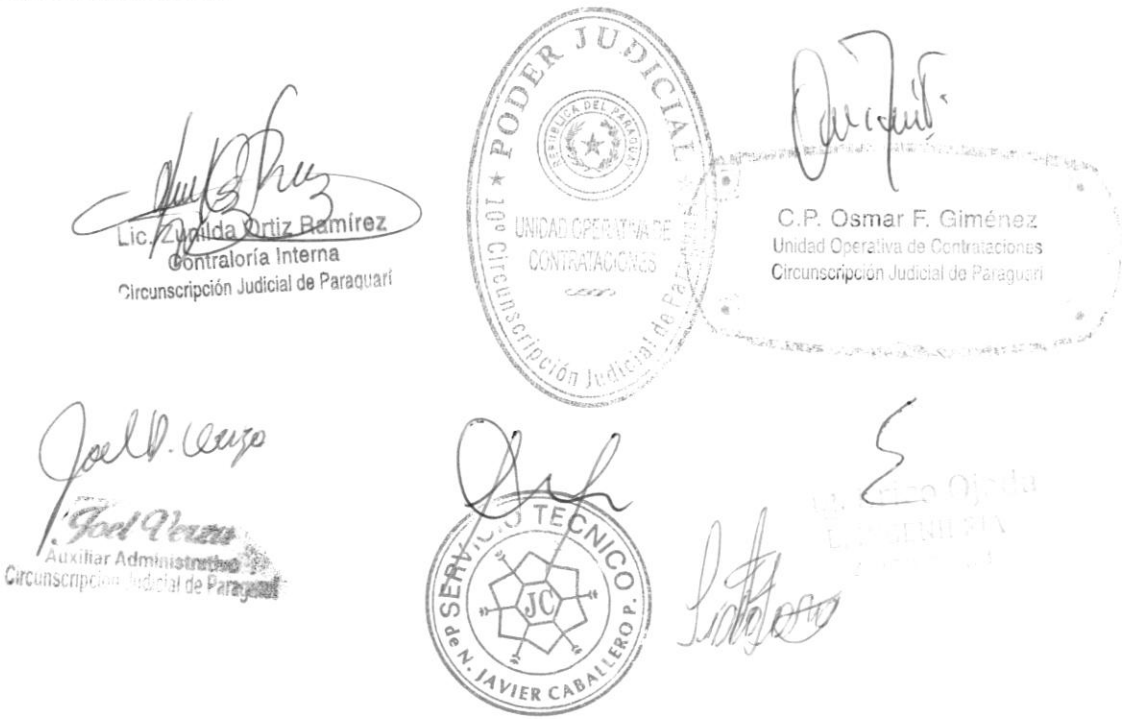 Lic. Zunilda Ortiz Ramírez
Contraloría Interna
Circunscripción Judicial de Paraguarí
★ PODER JUDICIAL ★
REPUBLICA DEL PARAGUAY
UNIDAD OPERATIVA DE
CONTRATACIONES
10º Circunscripción Judicial de Paraguarí
C.P. Osmar F. Giménez
Unidad Operativa de Contrataciones
Circunscripción Judicial de Paraguarí
Joel
Joel
Auxiliar Administrativo
Circunscripción Judicial de Paraguarí
SERVICIO TECNICO
JC
de N. JAVIER CABALLERO P.
Ojeda